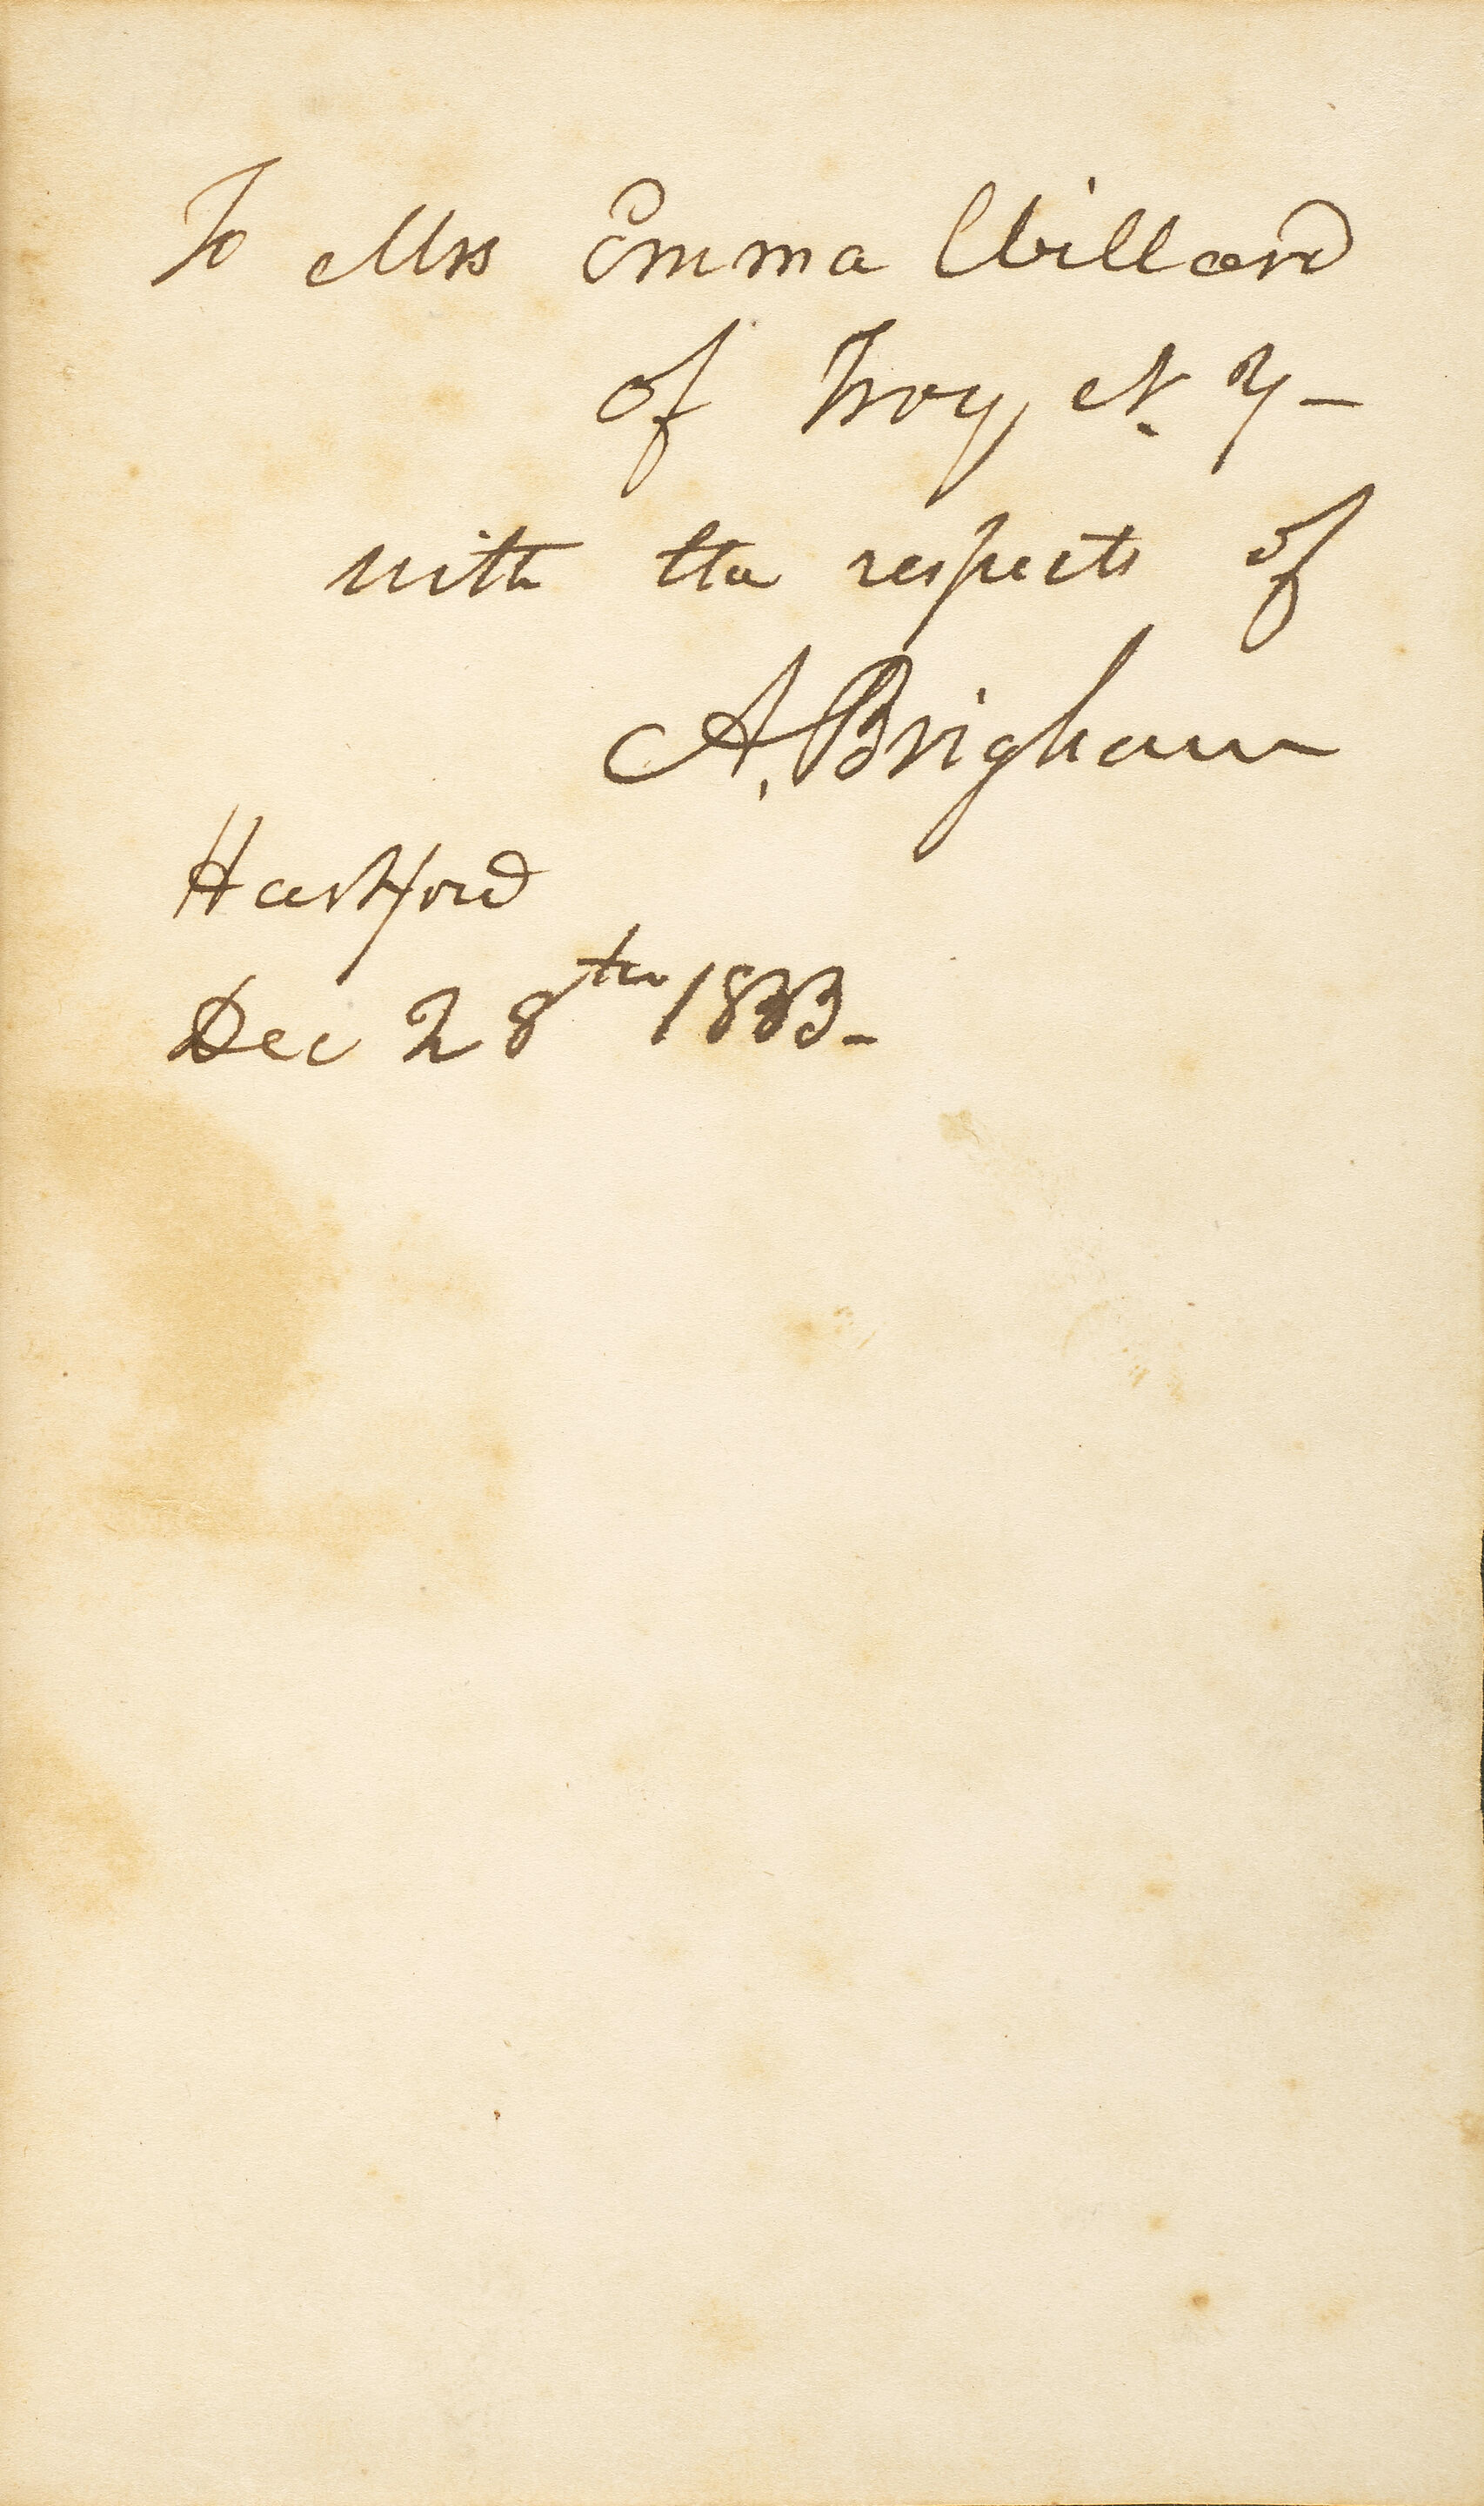 To Mrs Emma Willard
of Troy, N. Y -
with the respects of
A. Brigham
Hartford
Dec 28th 1833 -